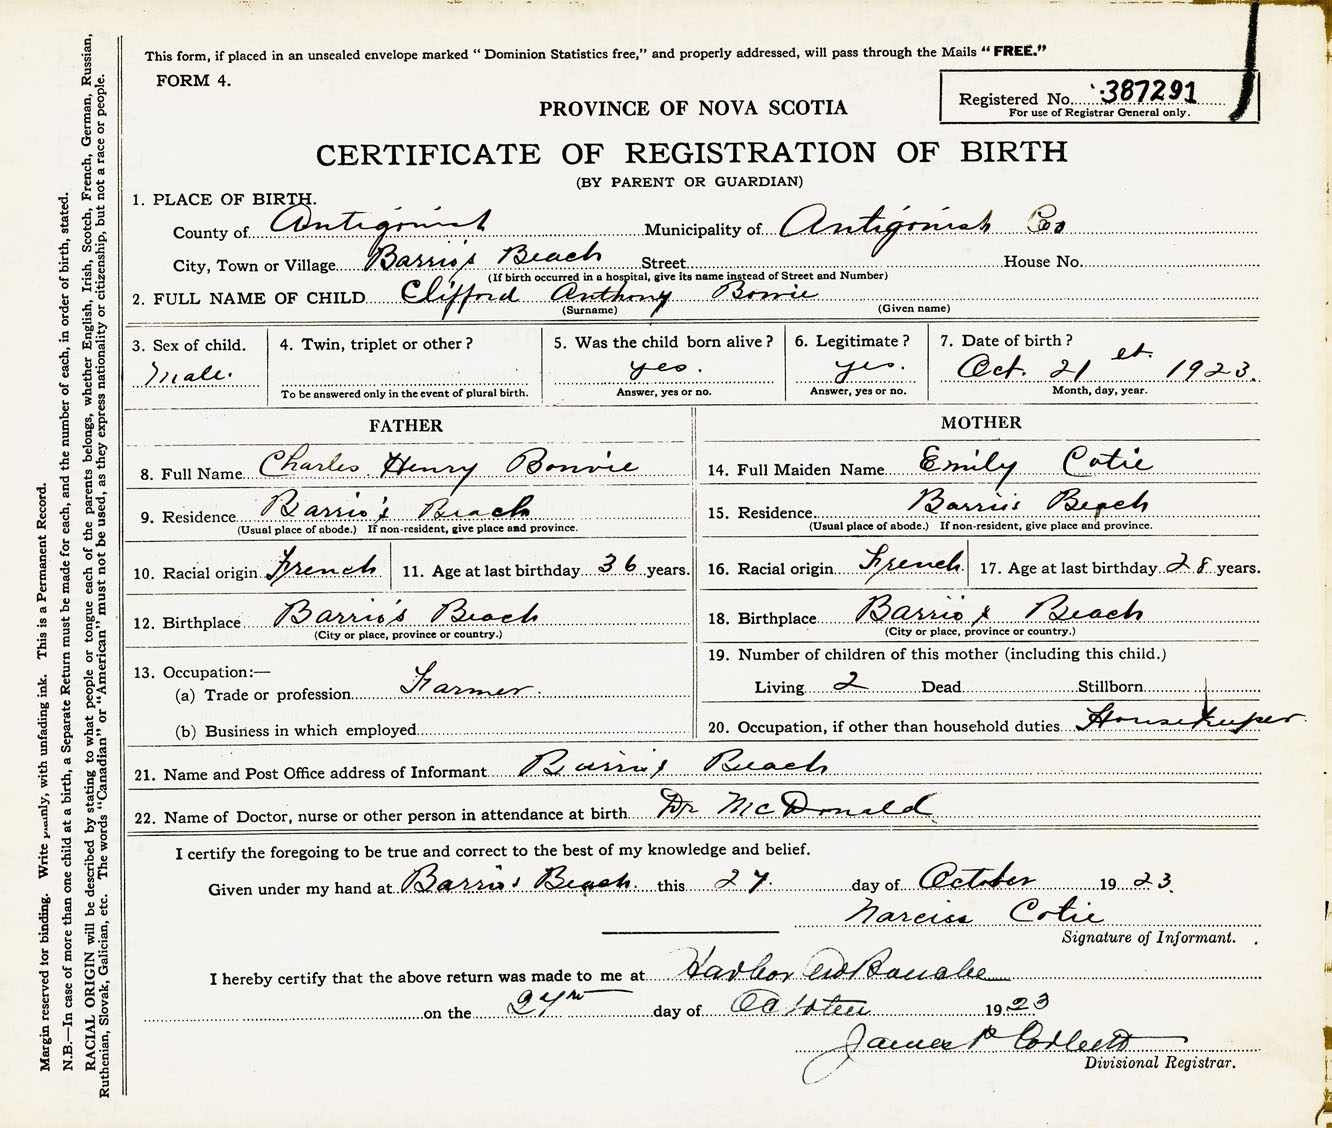 This form, if placed in an unsealed envelope marked "Dominion Statistics free," and properly addressed, will pass through the Mails "FREE."
FORM 4.
Registered No. 387291
For use of Registrar General only.
PROVINCE OF NOVA SCOTIA
CERTIFICATE OF REGISTRATION OF BIRTH
(BY PARENT OR GUARDIAN)
1. PLACE OF BIRTH.
County of Antigonish Municipality of Antigonish Co
City, Town or Village Barrio's Beach Street House No.
(If birth occurred in a hospital, give its name instead of Street and Number)
2. FULL NAME OF CHILD Clifford Anthony Bonvie
(Surname) (Given name)
3. Sex of child. 4. Twin, triplet or other? 5. Was the child born alive? 6. Legitimate? 7. Date of birth?
Male. yes. yes. Oct. 21 st. 1923.
To be answered only in the event of plural birth. Answer, yes or no. Answer, yes or no. Month, day, year.
FATHER MOTHER
8. Full Name Charles Henry Bonvie 14. Full Maiden Name Emily Cotie
9. Residence Barrio's Beach 15. Residence Barrio's Beach
(Usual place of abode.) If non-resident, give place and province. (Usual place of abode.) If non-resident, give place and province.
10. Racial origin French 11. Age at last birthday 36 years. 16. Racial origin French 17. Age at last birthday 28 years.
12. Birthplace Barrio's Beach 18. Birthplace Barrio's Beach
(City or place, province or country.) (City or place, province or country.)
13. Occupation:— 19. Number of children of this mother (including this child.)
(a) Trade or profession Farmer. Living 2 Dead Stillborn
(b) Business in which employed 20. Occupation, if other than household duties Housekeeper
21. Name and Post Office address of Informant Barrio's Beach
22. Name of Doctor, nurse or other person in attendance at birth Dr McDonald
I certify the foregoing to be true and correct to the best of my knowledge and belief.
Given under my hand at Barrio's Beach. this 27. day of October 1923.
Narciss Cotie
Signature of Informant.
I hereby certify that the above return was made to me at Harbor au Bouche
on the 27th day of October 1923
James P Corbett
Divisional Registrar.
Margin reserved for binding. Write plainly, with unfading ink. This is a Permanent Record.
N.B.—In case of more than one child at a birth, a Separate Return must be made for each, and the number of each, in order of birth, stated.
RACIAL ORIGIN will be described by stating to what people or tongue each of the parents belongs, whether English, Irish, Scotch, French, German, Russian,
Ruthenian, Slovak, Galician, etc. The words "Canadian" or "American" must not be used, as they express nationality or citizenship, but not a race or people.